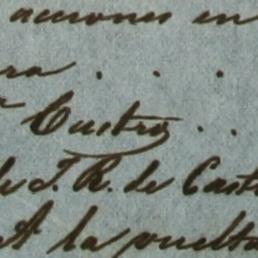 acciones en
ra . . .
Castro . .
de J. R. de Cast
A la vuelta